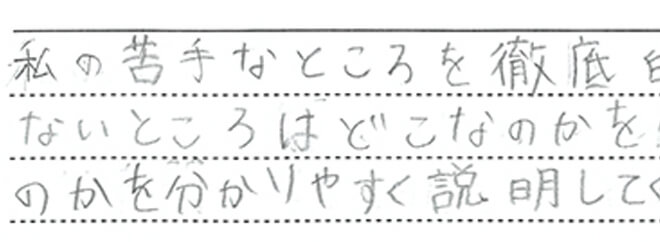 私の苦手なところを徹底
ないところはどこなのかを
のかを分かりやすく説明して